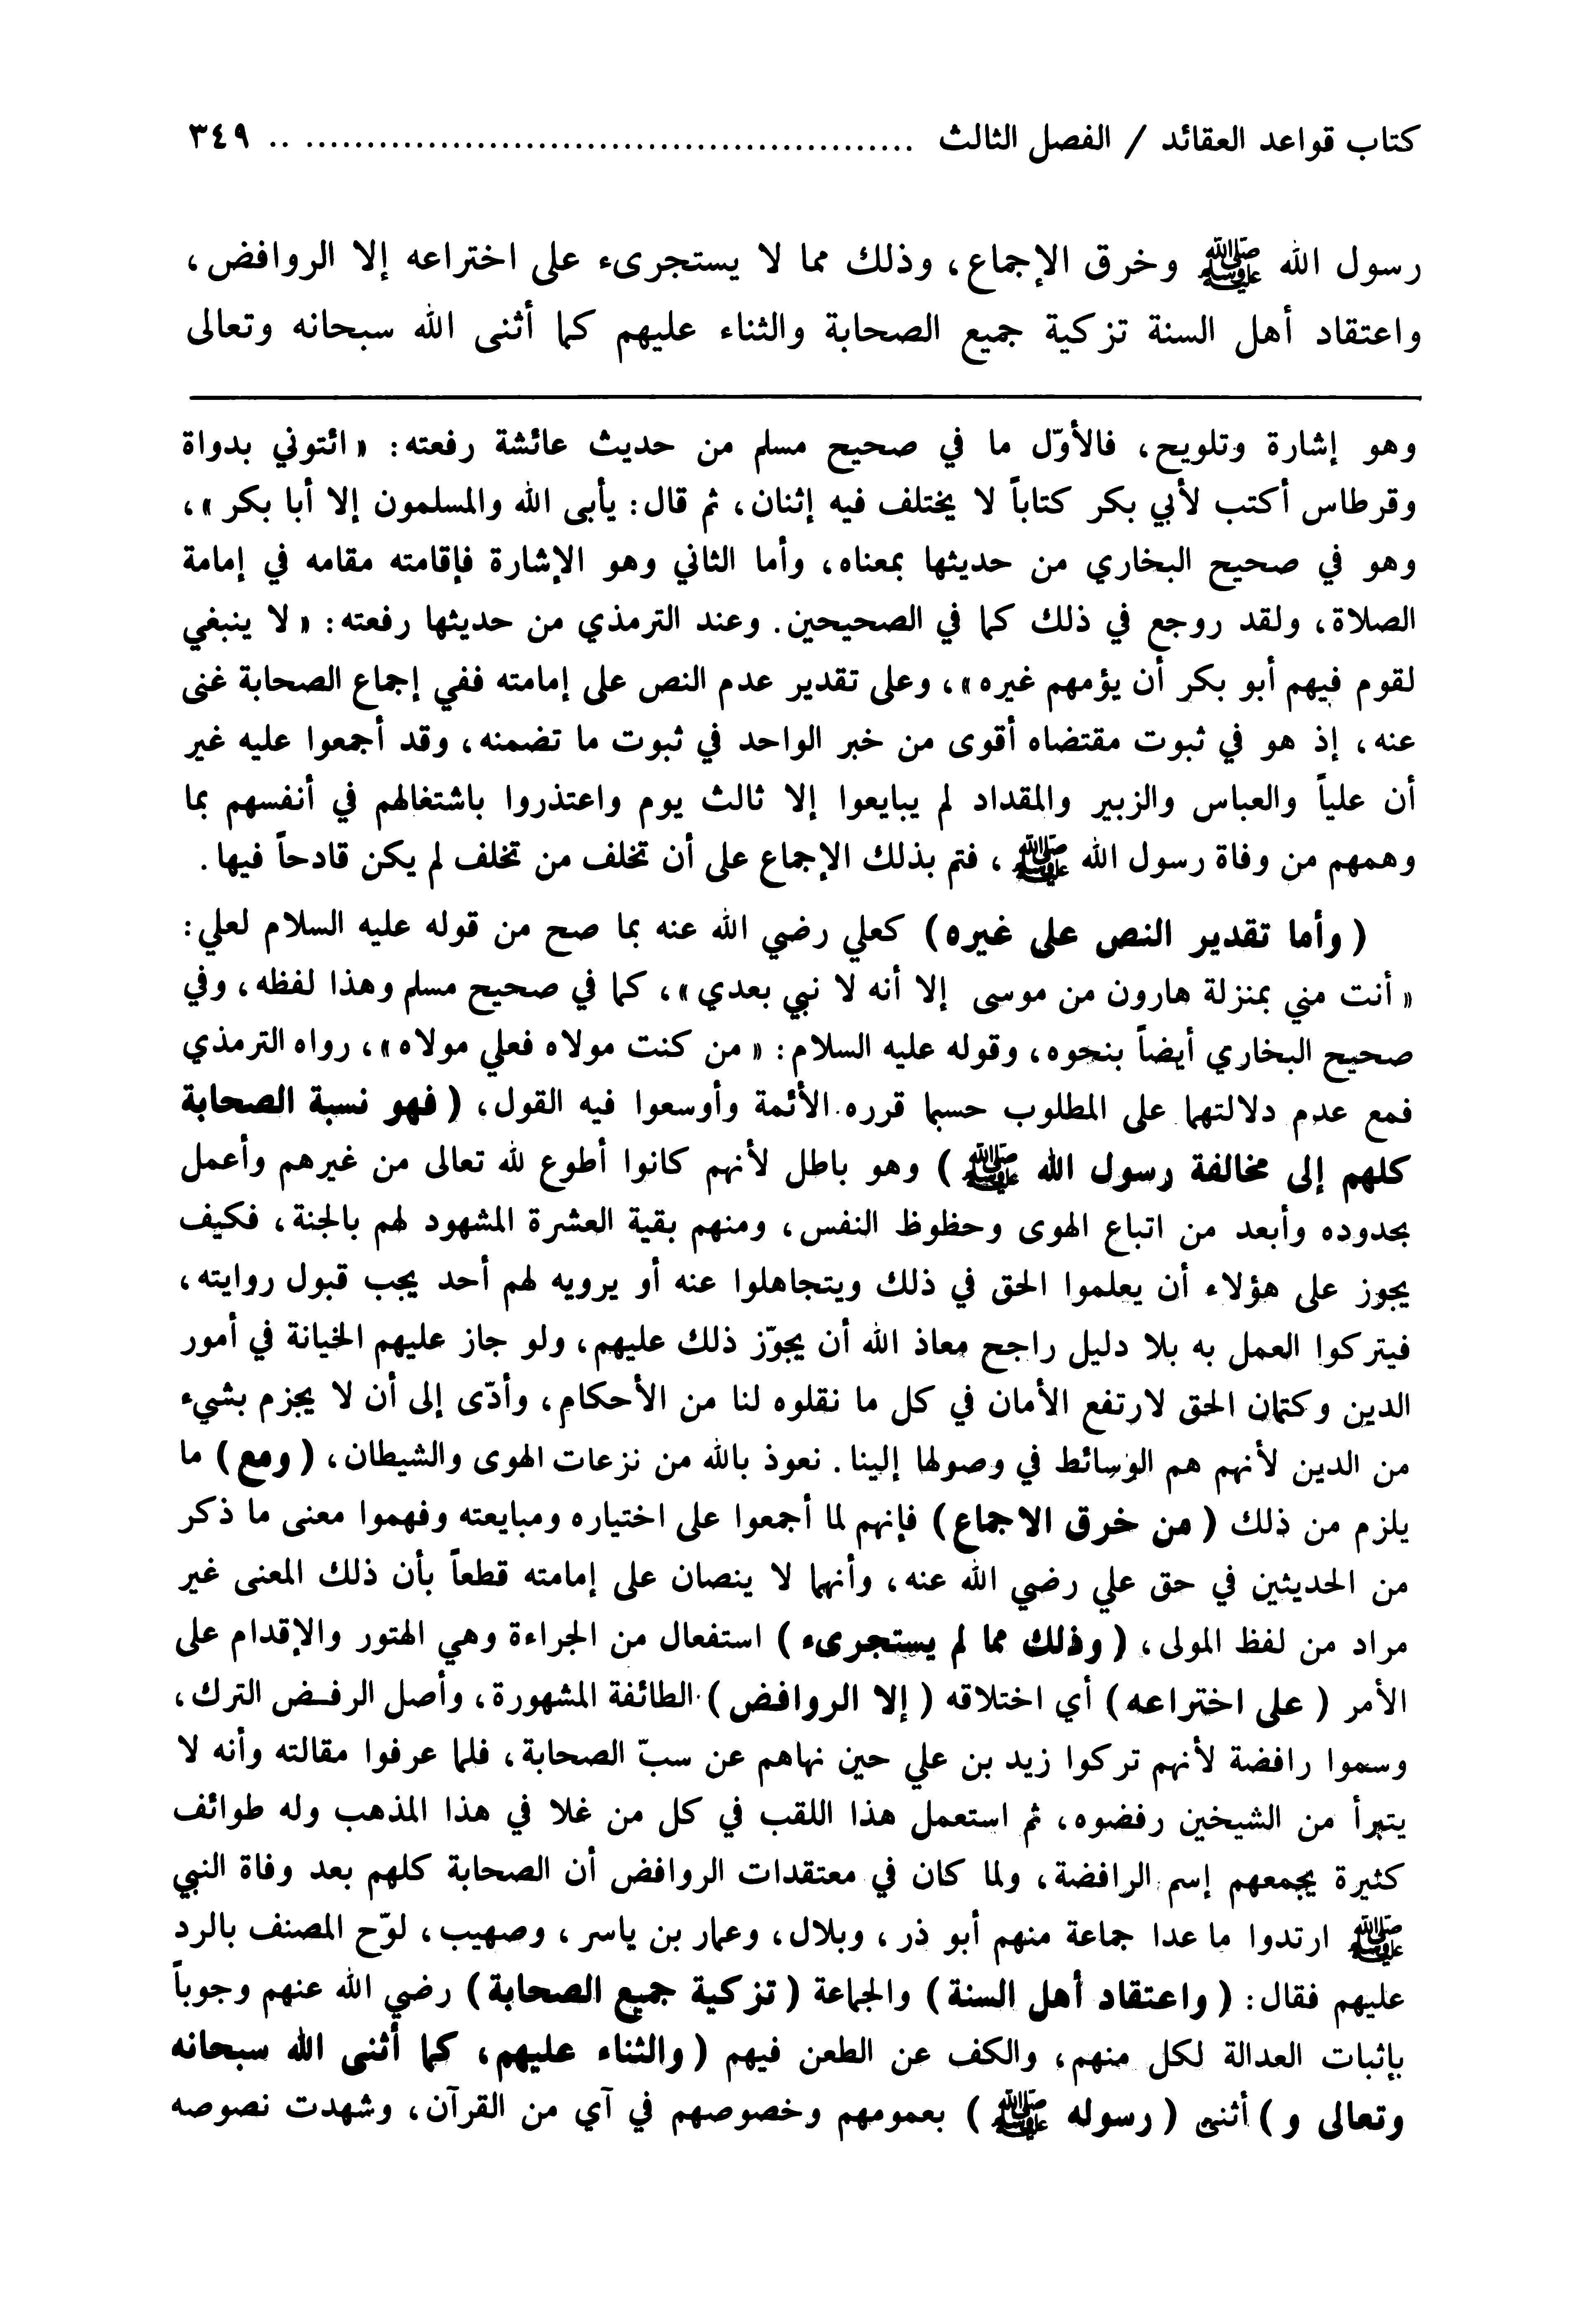 كتاب قواعد العقائد / الفصل الثالث .................................................... .. ٣٤٩
رسول الله ﷺ وخرق الإجماع، وذلك مما لا يستجرىء على اختراعه إلا الروافض،
واعتقاد أهل السنة تزكية جميع الصحابة والثناء عليهم كما أثنى الله سبحانه وتعالى
وهو إشارة وتلويح، فالأوّل ما في صحيح مسلم من حديث عائشة رفعته: « ائتوني بدواة
وقرطاس أكتب لأبي بكر كتاباً لا يختلف فيه إثنان، ثم قال: يأبى الله والمسلمون إلا أبا بكر »،
وهو في صحيح البخاري من حديثها بمعناه، وأما الثاني وهو الإشارة فإقامته مقامه في إمامة
الصلاة، ولقد روجع في ذلك كما في الصحيحين. وعند الترمذي من حديثها رفعته: « لا ينبغي
لقوم فيهم أبو بكر أن يؤمهم غيره »، وعلى تقدير عدم النص على إمامته ففي إجماع الصحابة غنى
عنه، إذ هو في ثبوت مقتضاه أقوى من خبر الواحد في ثبوت ما تضمنه، وقد أجمعوا عليه غير
أن علياً والعباس والزبير والمقداد لم يبايعوا إلا ثالث يوم واعتذروا باشتغالهم في أنفسهم بما
وهمهم من وفاة رسول الله ﷺ، فتم بذلك الإجماع على أن تخلف من تخلف لم يكن قادحاً فيها.
( وأما تقدير النص على غيره ) كعلي رضي الله عنه بما صح من قوله عليه السلام لعلي:
« أنت مني بمنزلة هارون من موسى إلا أنه لا نبي بعدي »، كما في صحيح مسلم وهذا لفظه، وفي
صحيح البخاري أيضاً بنحوه، وقوله عليه السلام: « من كنت مولاه فعلي مولاه »، رواه الترمذي
فمع عدم دلالتهما على المطلوب حسبما قرره الأئمة وأوسعوا فيه القول، ( فهو نسبة الصحابة
كلهم إلى مخالفة رسول الله ﷺ ) وهو باطل لأنهم كانوا أطوع لله تعالى من غيرهم وأعمل
بحدوده وأبعد من اتباع الهوى وحظوظ النفس، ومنهم بقية العشرة المشهود لهم بالجنة، فكيف
يجوز على هؤلاء أن يعلموا الحق في ذلك ويتجاهلوا عنه أو يرويه لهم أحد يجب قبول روايته،
فيتركوا العمل به بلا دليل راجح معاذ الله أن يجوّز ذلك عليهم، ولو جاز عليهم الخيانة في أمور
الدين وكتمان الحق لارتفع الأمان في كل ما نقلوه لنا من الأحكام، وأدّى إلى أن لا يجزم بشيء
من الدين لأنهم هم الوسائط في وصولها إلينا. نعوذ بالله من نزعات الهوى والشيطان، ( ومع ) ما
يلزم من ذلك ( من خرق الاجماع ) فإنهم لما أجمعوا على اختياره ومبايعته وفهموا معنى ما ذكر
من الحديثين في حق علي رضي الله عنه، وأنهما لا ينصان على إمامته قطعاً بأن ذلك المعنى غير
مراد من لفظ المولى، ( وذلك مما لم يستجرىء ) استفعال من الجراءة وهي الهتور والإقدام على
الأمر ( على اختراعه ) أي اختلاقه ( إلا الروافض ) الطائفة المشهورة، وأصل الرفـض الترك،
وسموا رافضة لأنهم تركوا زيد بن علي حين نهاهم عن سبّ الصحابة، فلما عرفوا مقالته وأنه لا
يتبرأ من الشيخين رفضوه، ثم استعمل هذا اللقب في كل من غلا في هذا المذهب وله طوائف
كثيرة يجمعهم إسم الرافضة، ولما كان في معتقدات الروافض أن الصحابة كلهم بعد وفاة النبي
ﷺ ارتدوا ما عدا جماعة منهم أبو ذر، وبلال، وعمار بن ياسر، وصهيب، لوّح المصنف بالرد
عليهم فقال: ( واعتقاد أهل السنة ) والجماعة ( تزكية جميع الصحابة ) رضي الله عنهم وجوباً
بإثبات العدالة لكل منهم، والكف عن الطعن فيهم ( والثناء عليهم، كما أثنى الله سبحانه
وتعالى و ) أثنى ( رسوله ﷺ ) بعمومهم وخصوصهم في آي من القرآن، وشهدت نصوصه